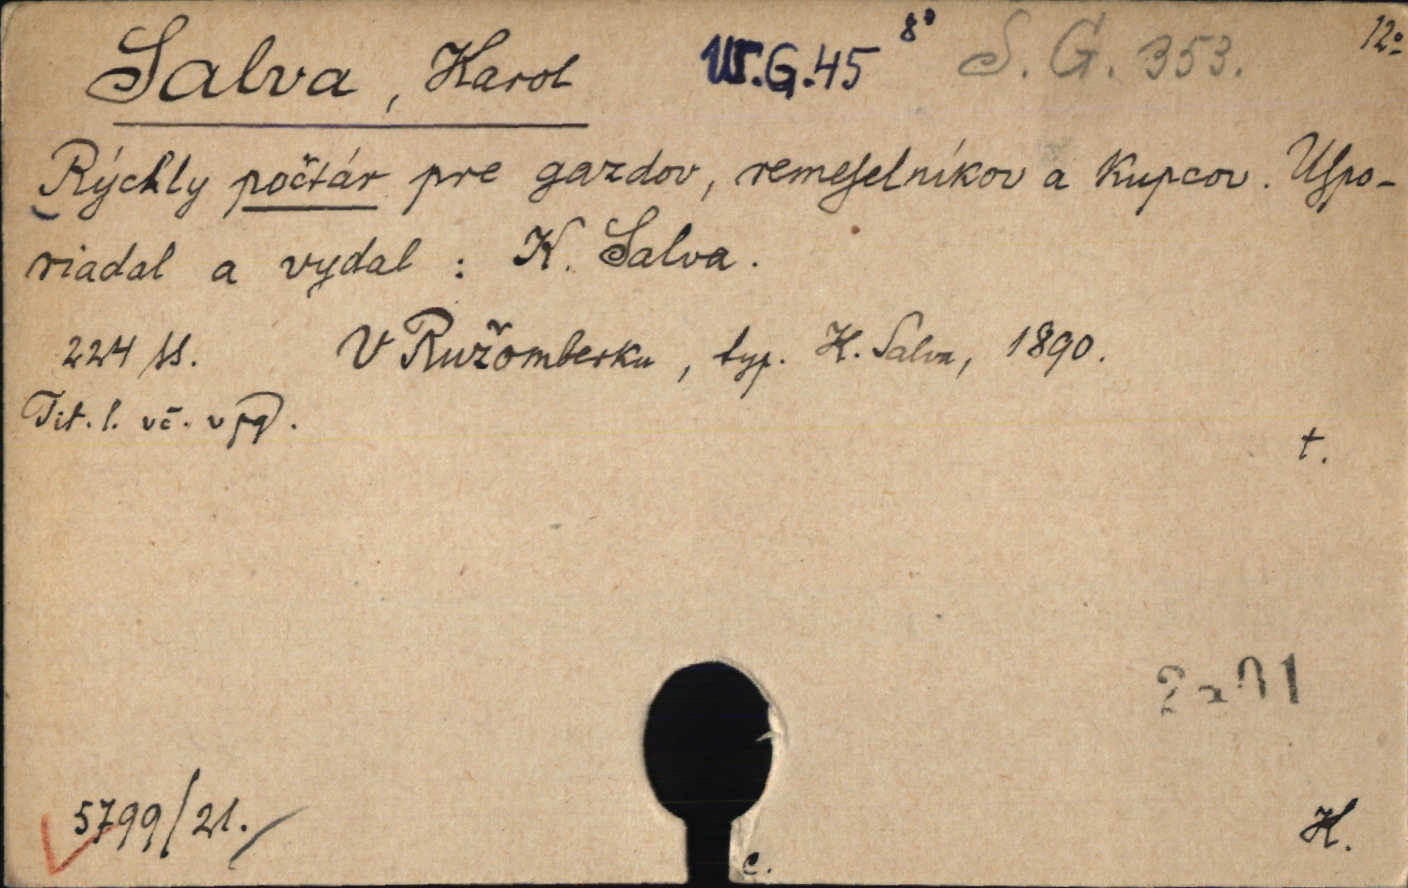 Salva, Karol W.G.45 8° S. G. 353. 12°
Rýchly počtár pre gazdov, remeselníkov a kupcov. Uspo-
riadal a vydal : K. Salva.
224 ss. V Ružomberku, typ. K. Salva, 1890.
Tit. l. vč. v pg.
t.
5799/21.
K.
c.